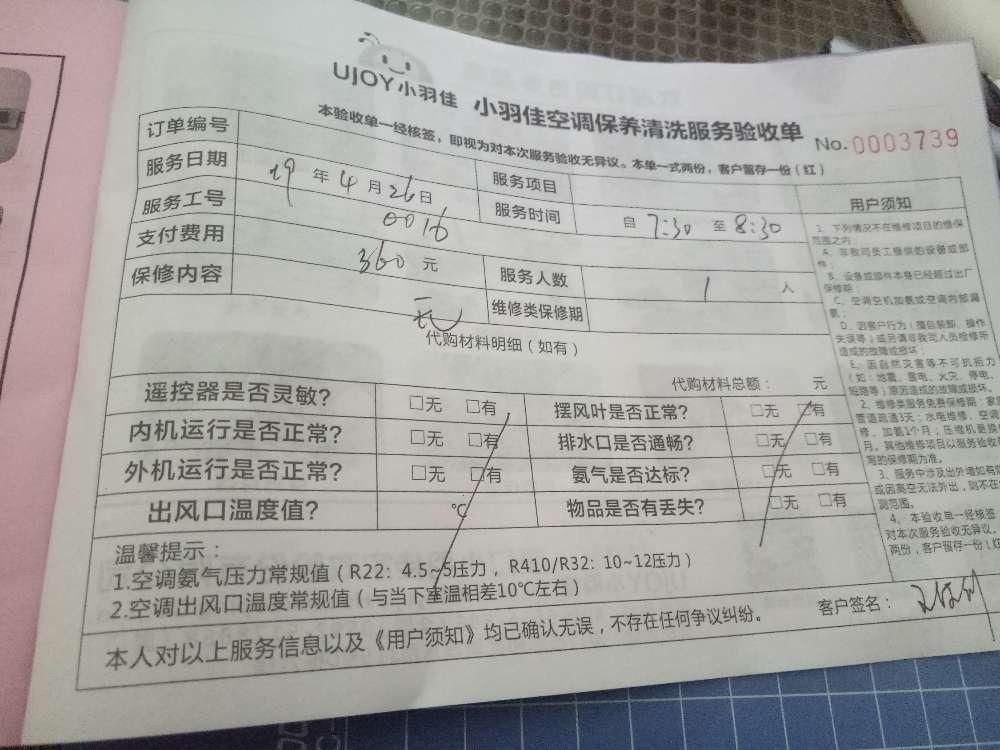 UJOY小羽佳 小羽佳空调保养清洗服务验收单
No. 0003739
本验收单一经核签，即视为对本次服务验收无异议。本单一式两份，客户留存一份（红）
订单编号 服务项目
服务日期 19年4月26日 服务时间 自 7:30 至 8:30
服务工号 0016
支付费用 360元 服务人数 1 人
保修内容 无 维修类保修期
代购材料明细（如有）
代购材料总额： 元
遥控器是否灵敏？ □无 □有 摆风叶是否正常？ □无 □有
内机运行是否正常？ □无 □有 排水口是否通畅？ □无 □有
外机运行是否正常？ □无 □有 氨气是否达标？ □无 □有
出风口温度值？ ℃ 物品是否有丢失？ □无 □有
温馨提示：
1.空调氨气压力常规值（R22：4.5~5压力，R410/R32：10~12压力）
2.空调出风口温度常规值（与当下室温相差10℃左右）
本人对以上服务信息以及《用户须知》均已确认无误，不存在任何争议纠纷。
客户签名：
用户须知
1、下列情况不在维修项目的维保
范围之内：
A、非我司员工提供的设备或部
件；
B、设备或部件本身已经超过出厂
保修期；
C、空调空机加氨或空调内部漏
氨；
D、因客户行为（擅自装卸、操作
失误等）或另请非我司人员检修所
造成的故障或损坏；
E、因自然灾害等不可抗拒力
（如：地震、雷电、火灾、停电、
短路等）原因造成的故障或损坏。
2、维修类服务免费保修期：家
管道疏通3天；水电维修、空调
修、加氨1个月；压缩机更换
月。其他维修项目以服务验收
写的保修期为准。
3、服务中涉及出外墙如有
或因高空无法外出，则不在
测范围。
4、本验收单一经核签
对本次服务验收无异议。
两份，客户留存一份（红